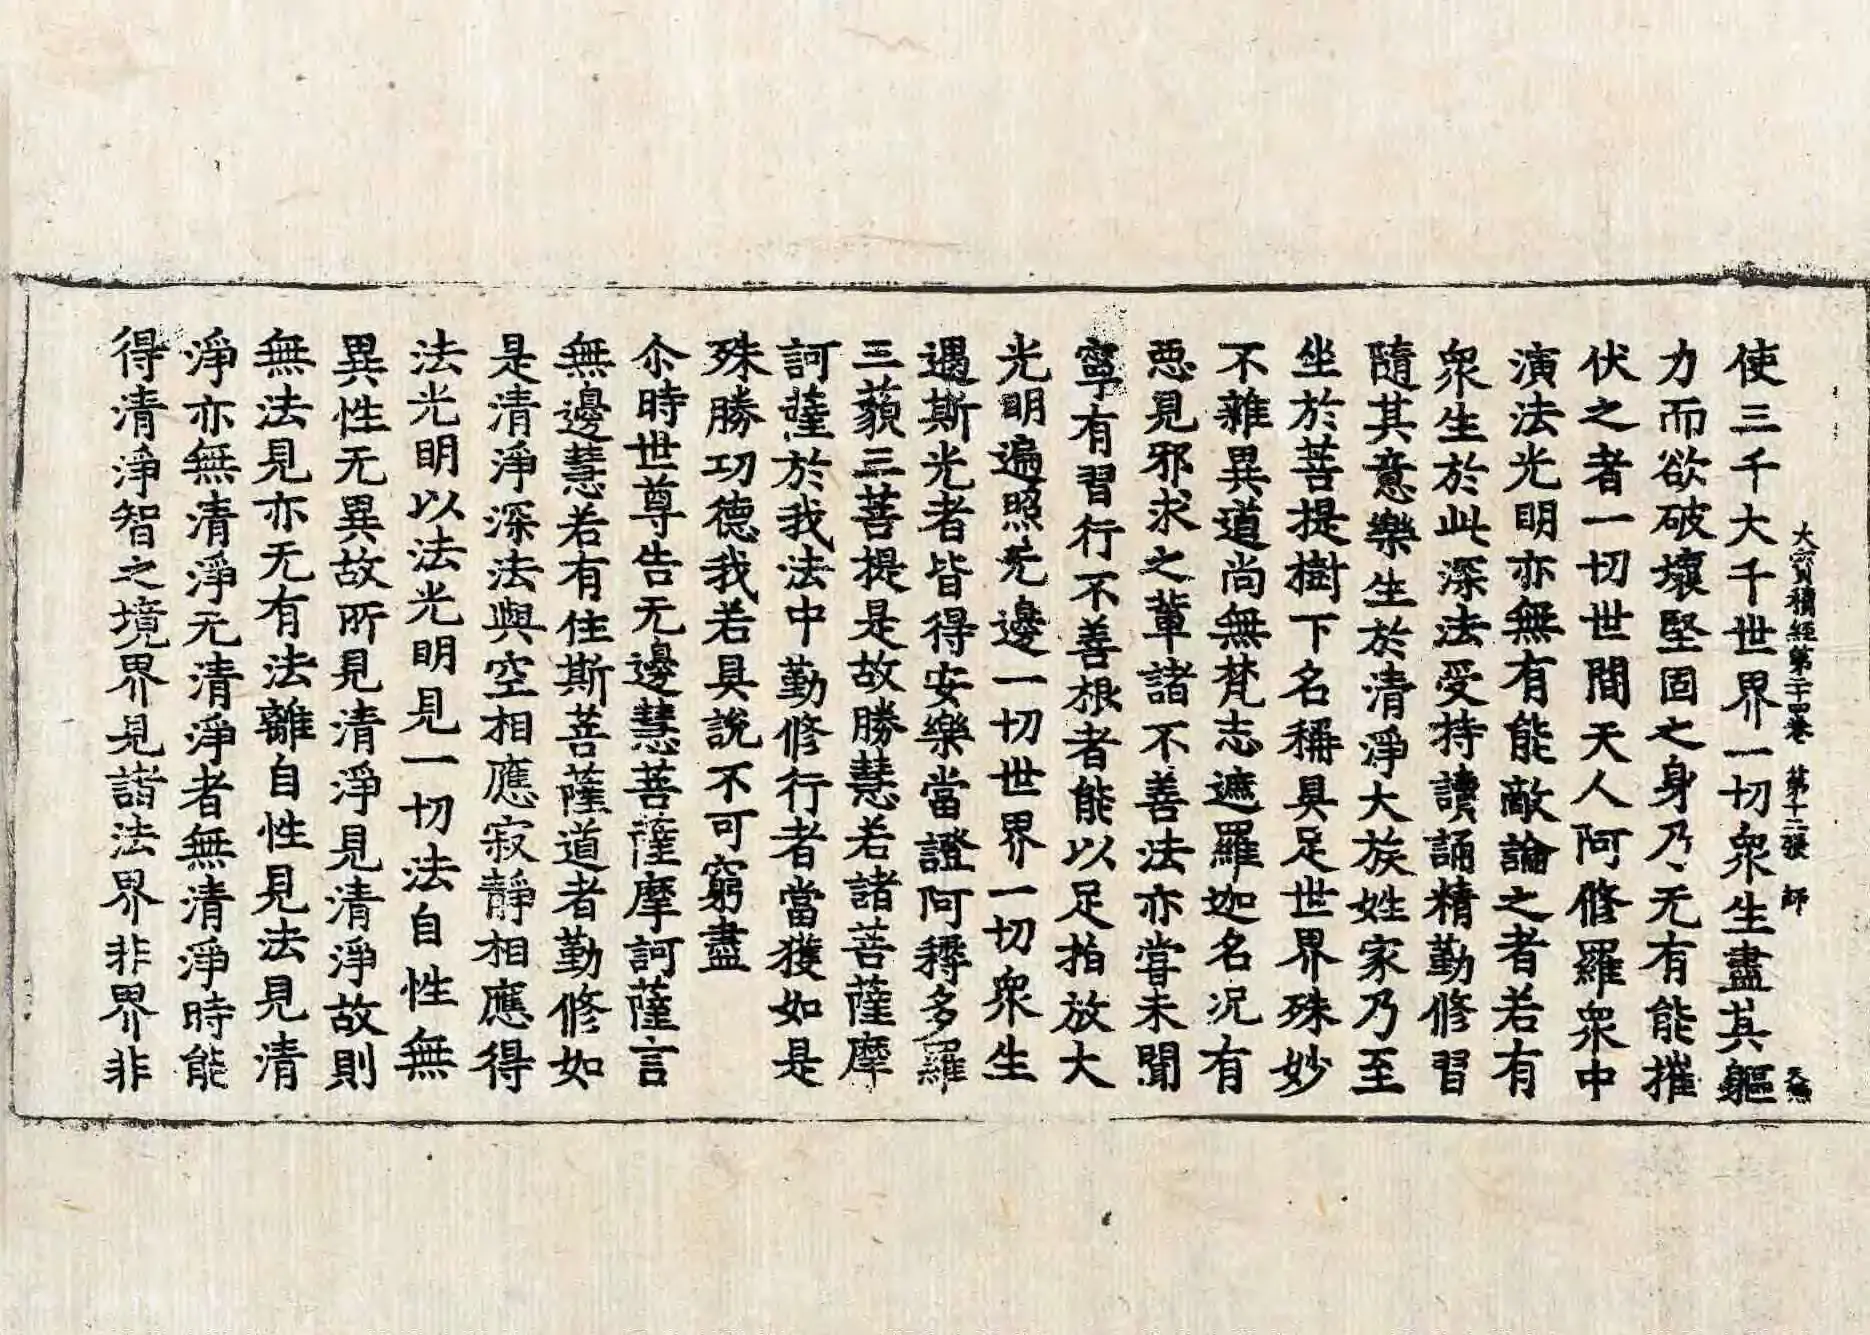 大寶積經第二十四卷 第十二張 師
使三千大千世界一切衆生盡其軀
力而欲破壞堅固之身乃〻无有能摧
伏之者一切世間天人阿修羅衆中
演法光明亦無有能敵論之者若有
衆生於此深法受持讀誦精勤修習
隨其意樂生於清淨大族姓家乃至
坐於菩提樹下名稱具足世界殊妙
不雜異道尚無梵志遮羅迦名况有
惡見邪求之輩諸不善法亦嘗未聞
寧有習行不善根者能以足拍放大
光明遍照无邊一切世界一切衆生
遇斯光者皆得安樂當證阿耨多羅
三藐三菩提是故勝慧若諸菩薩摩
訶薩於我法中勤修行者當獲如是
殊勝功德我若具說不可窮盡
尒時世尊告无邊慧菩薩摩訶薩言
無邊慧若有住斯菩薩道者勤修如
是清淨深法與空相應寂靜相應得
法光明以法光明見一切法自性無
異性无異故所見清淨見清淨故則
無法見亦无有法離自性見法見清
淨亦無清淨无清淨者無清淨時能
得清淨智之境界見諸法界非界非